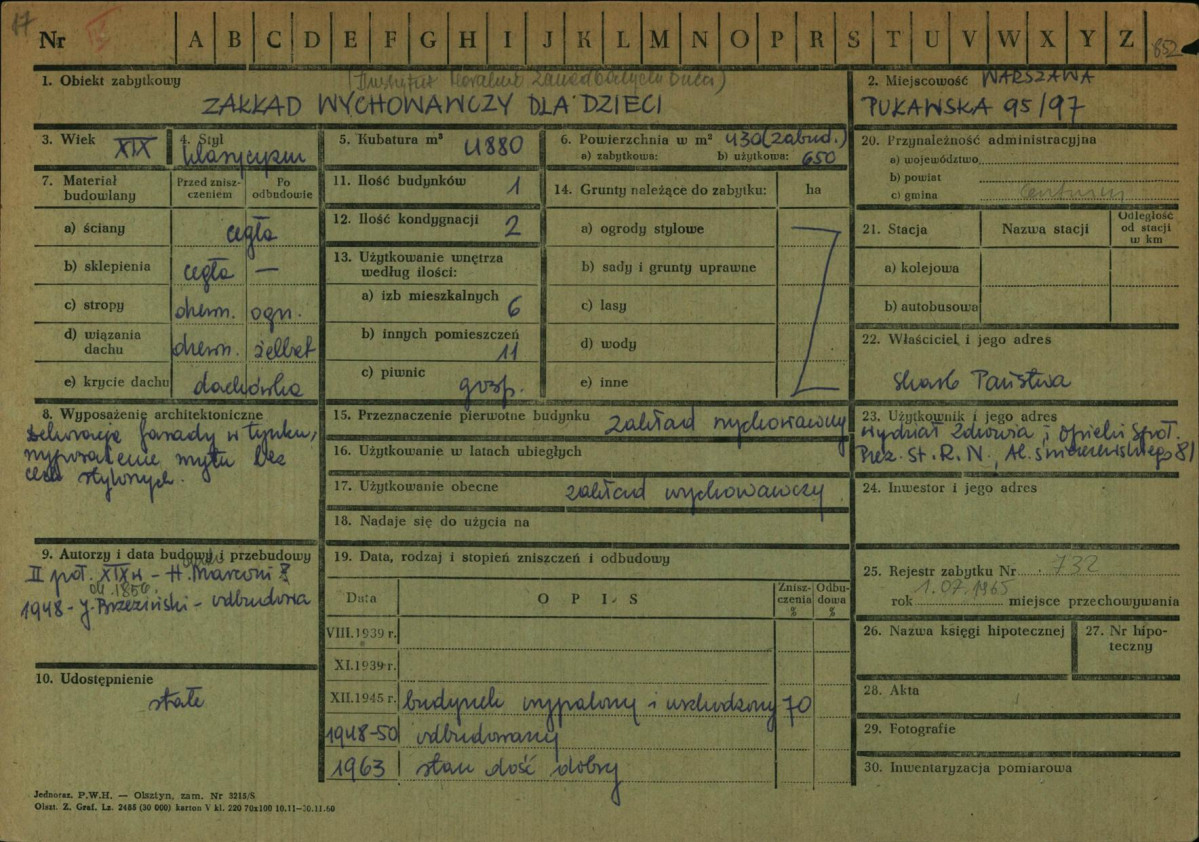 17
Nr A B C D E F G H I J K L M N O P R S T U V W X Y Z 852
1. Obiekt zabytkowy (Instytut Moralnie Zaniedbanych Dzieci)
ZAKŁAD WYCHOWAWCZY DLA DZIECI
2. Miejscowość WARSZAWA
PUŁAWSKA 95/97
3. Wiek XIX
4. Styl klasycyzm
5. Kubatura m³ 4880
6. Powierzchnia w m² 430 (zabud.)
a) zabytkowa: b) użytkowa: 650
7. Materiał budowlany
Przed zniszczeniem
Po odbudowie
a) ściany cegła
b) sklepienia cegła —
c) stropy drewn. ogn.
d) wiązania dachu drewn. żelbet
e) krycie dachu dachówka
8. Wyposażenie architektoniczne
Dekoracje fasady w tynku,
wyposażenie wnętrz bez
cech stylowych.
9. Autorzy i data budowy i przebudowy
II poł. XIX w – H. Marconi
ok. 1856.
1948 - J. Brzeziński - odbudowa
10. Udostępnienie
stałe
11. Ilość budynków 1
12. Ilość kondygnacji 2
13. Użytkowanie wnętrza według ilości:
a) izb mieszkalnych 6
b) innych pomieszczeń 11
c) piwnic gosp.
14. Grunty należące do zabytku: ha
a) ogrody stylowe
b) sady i grunty uprawne
c) lasy
d) wody
e) inne
15. Przeznaczenie pierwotne budynku zakład wychowawczy
16. Użytkowanie w latach ubiegłych
17. Użytkowanie obecne zakład wychowawczy
18. Nadaje się do użycia na
19. Data, rodzaj i stopień zniszczeń i odbudowy
Data OPIS Zniszczenia % Odbudowa %
VIII.1939 r.
XI.1939 r.
XII.1945 r. budynek wypalony i uszkodzony 70
1948-50 odbudowany
1963 stan dość dobry
20. Przynależność administracyjna
a) województwo
b) powiat
c) gmina
21. Stacja Nazwa stacji Odległość od stacji w km
a) kolejowa
b) autobusowa
22. Właściciel i jego adres
Skarb Państwa
23. Użytkownik i jego adres
Wydział Zdrowia i Opieki Społ.
Prez. St. R. N., Al. Świerczewskiego 81
24. Inwestor i jego adres
25. Rejestr zabytku Nr 732
rok 1.07.1965 miejsce przechowywania
26. Nazwa księgi hipotecznej
27. Nr hipoteczny
28. Akta
29. Fotografie
30. Inwentaryzacja pomiarowa
Jednoraz. P.W.H. — Olsztyn, zam. Nr 3215/S
Olszt. Z. Graf. Lz. 2485 (30 000) karton V kl. 220 70x100 10.11—30.11.60